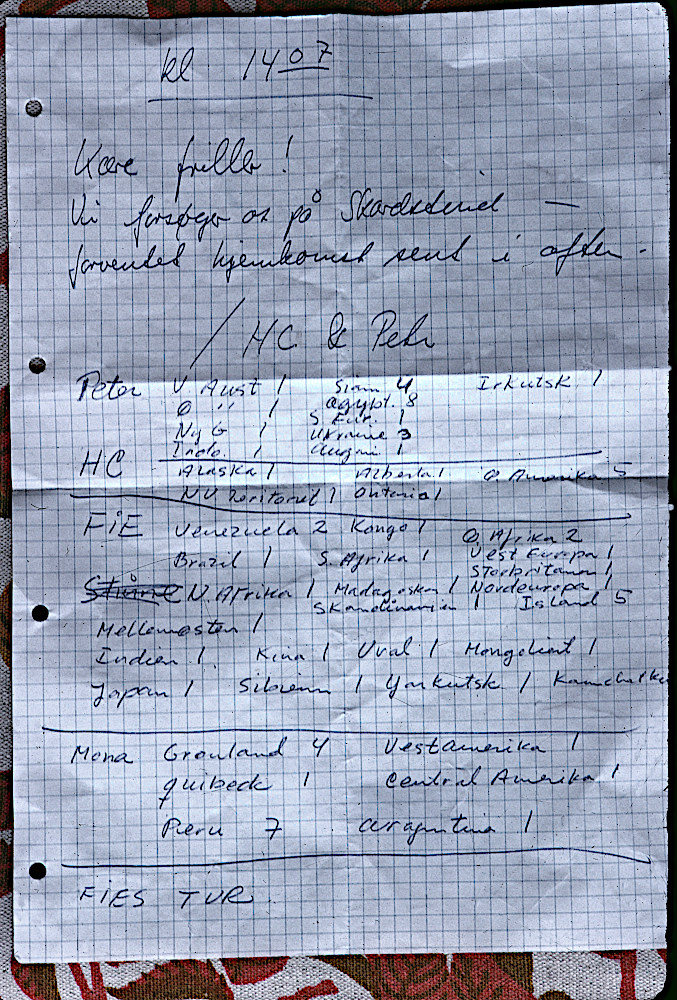 kl 14 07
Kære friller!
Vi forsøger os på Skardstind —
forventet hjemkomst sent i aften.
/ HC & Peter
Peter V Aust 1 Siam 4 Irkutsk 1
Ø " 1 Ægypt. 8
Ny G 1 S Eur. 1
Indo. 1 Ukraine 3
HC Alaska 1 Alberta 1 Ø. Amerika 5
NV Teritoriet 1 Ontario 1
FIE Venezuela 2 Kongo 1 Ø. Afrika 2
Brazil 1 S. Afrika 1 Vest Europa 1
Storbritanien 1
N Afrika 1 Madagaskar 1 Nordeuropa 1
Skandinavien 1 Island 5
Mellemøsten 1
Indien 1 Kina 1 Ural 1 Mongoliet 1
Japan 1 Sibirien 1 Yarkutsk 1 Kamchatka
Mona Grønland 4 Vestamerika 1
Quibeck 1 Central Amerika 1
Peru 7 Aragntina 1
FIES TUR